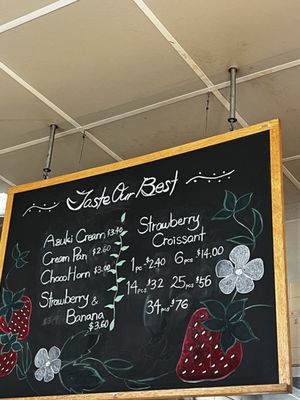 Taste Our Best
Azuki Cream $3.40
Cream Pan $2.60
Choco Horn $3.00
Strawberry &
Banana $3.60
Strawberry
Croissant
1pc $2.40 6pcs $14.00
14pcs $32 25pcs $56
34pcs $76